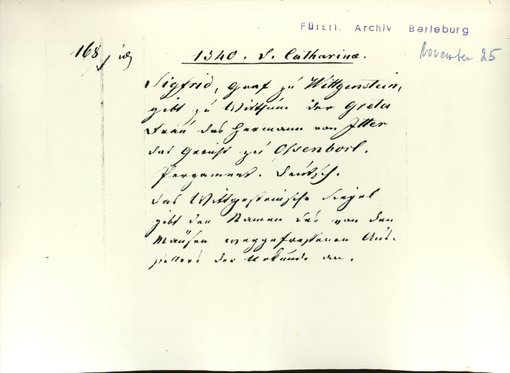 Fürstl. Archiv Berleburg
November 25
168
1340. S. Catharinæ.
Sigfrid, Graf zu Wittgenstein,
gibt zu Witthum der Greta
Frau des Hermann von Itter
das Gericht zu Ossenborl.
Pergament. Deutsch.
Das Wittgensteinsche Siegel
gibt den Namen des von den
Mäusen weggefressenen Aus-
stellers der Urkunde an.